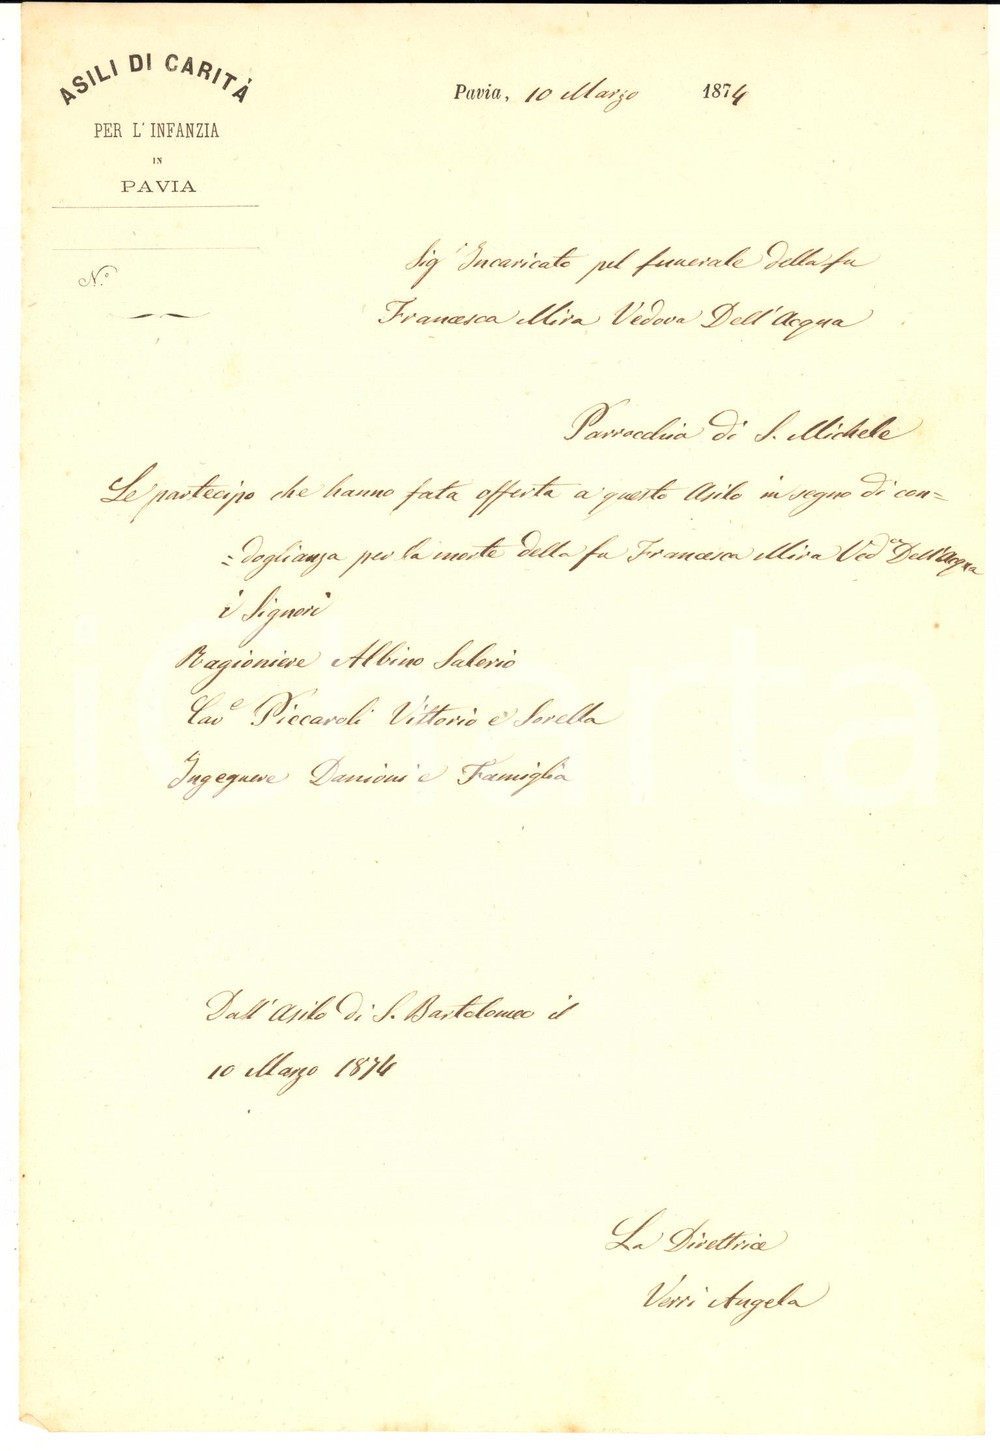 ASILI DI CARITÀ
PER L'INFANZIA
IN
PAVIA
N.º
Pavia, 10 Marzo 1874
Sig.r Incaricato pel funerale della fu
Francesca Mira Vedova Dell'Acqua
Parrocchia di S. Michele
Le partecipo che hanno fata offerta a questo Asilo in segno di con=
=doglianza per la morte della fu Francesca Mira Ved.va Dell'Acqua
i Signori
Ragioniere Albino Salerio
Cav.e Piccaroli Vittorio e Sorella
Ingegnere Danioni e Famiglia
Dall'Asilo di S. Bartolomeo il
10 Marzo 1874
La Direttrice
Verri Angela